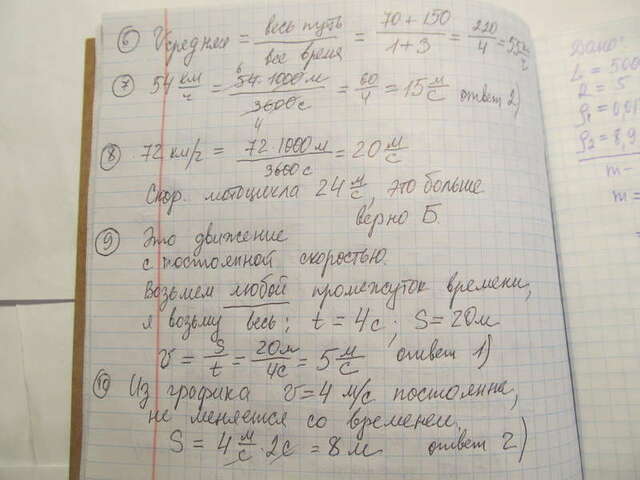 ⑥ Vсреднее = весь путь / все время = 70 + 150 / 1 + 3 = 220 / 4 = 55 км/ч
⑦ 54 км/ч = 54 · 1000 м / 3600 с = 60 / 4 = 15 м/с ответ 2)
⑧ 72 км/ч = 72 · 1000 м / 3600 с = 20 м/с
Скор. мотоцикла 24 м/с, это больше
верно Б.
⑨ Это движение
с постоянной скоростью.
Возьмем любой промежуток времени,
я возьму весь; t = 4с; S = 20м
v = S / t = 20м / 4с = 5 м/с ответ 1)
⑩ Из графика v = 4 м/с постоянна,
не меняется со временем.
S = 4 м/с · 2с = 8 м ответ 2)
Дано:
L = 500
R = 5
ρ₁ = 0,0
ρ₂ = 8,9
m -
m =